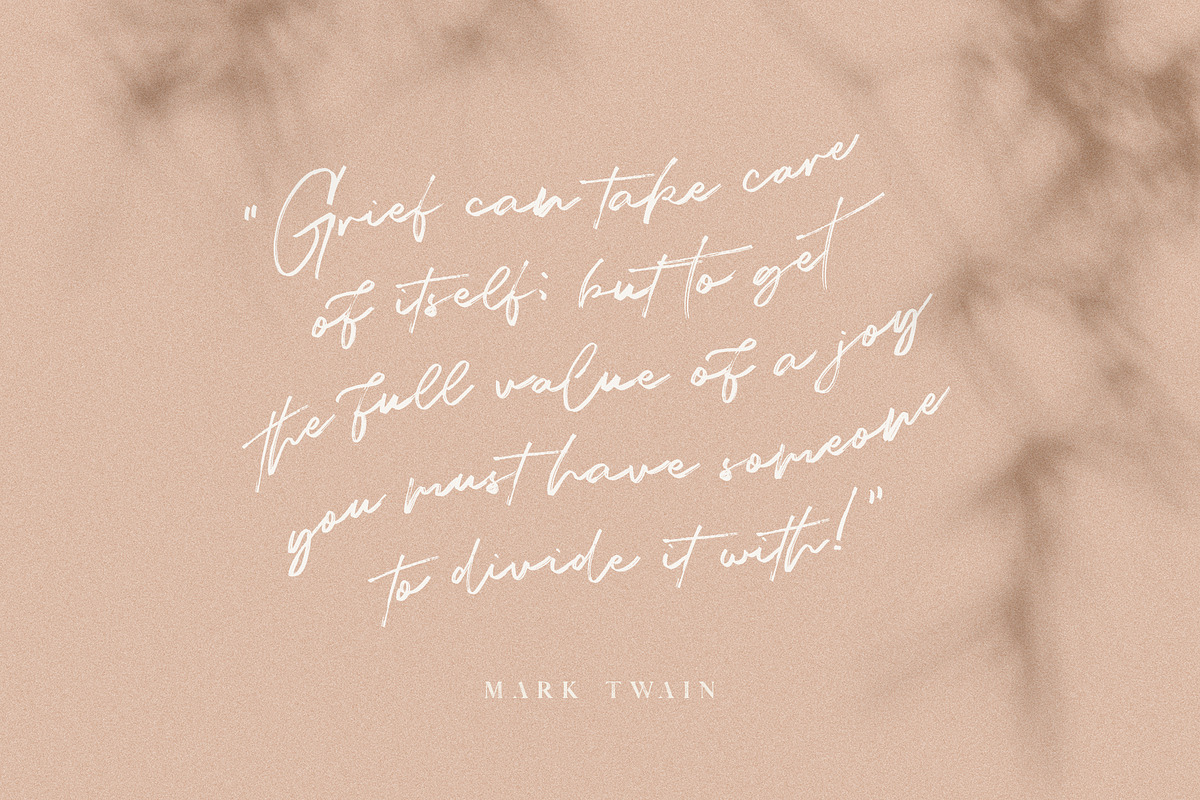 "Grief can take care
of itself; but to get
the full value of a joy
you must have someone
to divide it with!"
MARK TWAIN